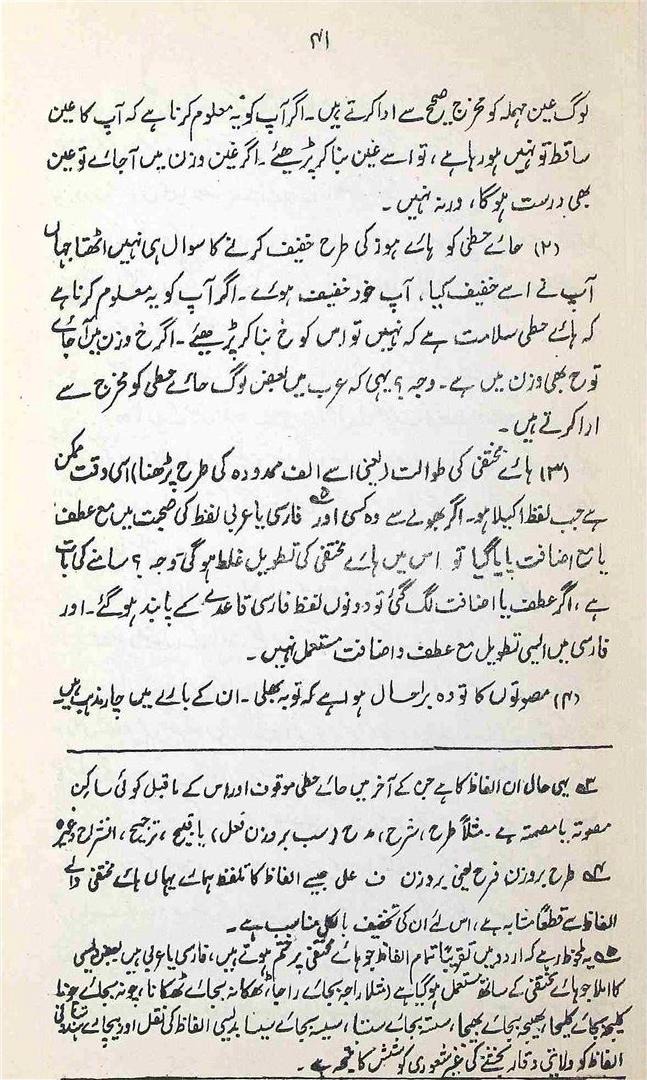 ۴۱
لوگ عین مہملہ کو مخرج صحیح سے ادا کرتے ہیں۔ اگر آپ کو یہ معلوم کرنا ہے کہ آپ کا عین
ساقط تو نہیں ہو رہا ہے، تو اسے غین بنا کر پڑھیئے۔ اگر غین وزن میں آجائے تو عین
بھی درست ہوگا، ورنہ نہیں۔
(۲) حائے حطی کو ہائے ہوز کی طرح خفیف کرنے کا سوال ہی نہیں اٹھتا جہاں
آپ نے اسے خفیف کیا، آپ خود خفیف ہوئے۔ اگر آپ کو یہ معلوم کرنا ہے
کہ حائے حطی سلامت ہے کہ نہیں تو اس کو خ بنا کر پڑھیئے۔ اگر خ وزن میں آجائے
تو ح بھی وزن میں ہے۔ وجہ؟ یہی کہ عرب میں بعض لوگ حائے حطی کو مخرج سے
ادا کرتے ہیں۔
(۳) ہائے مختفی کی طوالت (یعنی اسے الف ممدودہ کی طرح پڑھنا) اسی وقت ممکن
ہے جب لفظ اکیلا ہو۔ اگر بھولے سے وہ کسی اور۵ فارسی یا عربی لفظ کی صحبت میں مع عطف
یا مع اضافت پایا گیا تو اس میں ہائے مختفی کی تطویل غلط ہوگی وجہ؟ سامنے کی بات
ہے، اگر عطف یا اضافت لگ گئی تو دونوں لفظ فارسی قاعدے کے پابند ہوگئے۔ اور
فارسی میں ایسی تطویل مع عطف و اضافت مستعمل نہیں۔
(۴) مصوتوں کا تو وہ برا حال ہوا ہے کہ توبہ بھلی۔ ان کے بارے میں چار مذہب ہیں۔
۳ یہی حال ان الفاظ کا ہے جن کے آخر میں حائے حطی موقوف اور اس کے ماقبل کوئی ساکن
مصوتہ یا مصمتہ ہے۔ مثلاً طرح، شرح، مدح (سب بروزن فعل) یا قبیح، ترجیح، انشراح وغیرہ
۴ طرح بروزن فرح یعنی بروزن ف علی جیسے الفاظ کا تلفظ ہمارے یہاں ہائے مختفی والے
الفاظ سے قطعاً مشابہ ہے، اس لئے ان کی تخفیف بالکل مناسب ہے۔
۵ یہ ملحوظ رہے کہ اردو میں تقریباً تمام الفاظ جو ہائے مختفی پر ختم ہوتے ہیں، فارسی یا عربی ہیں بعض دیسی
کا املا جو ہائے مختفی کے ساتھ مستعمل ہوگیا ہے (مثلاً راجہ بجائے راجا، ٹھکانہ بجائے ٹھکانا، چونہ بجائے چونا
کلیجہ بجائے کلیجا، بھیجہ بجائے بھیجا، ستہ بجائے ستا، سینہ بجائے سینا بدیسی الفاظ کی نقل اور بیچارے ہندستانی
الفاظ کو ولایتی وقار بخشنے کی غیر شعوری کوشش کا نتیجہ ہے۔